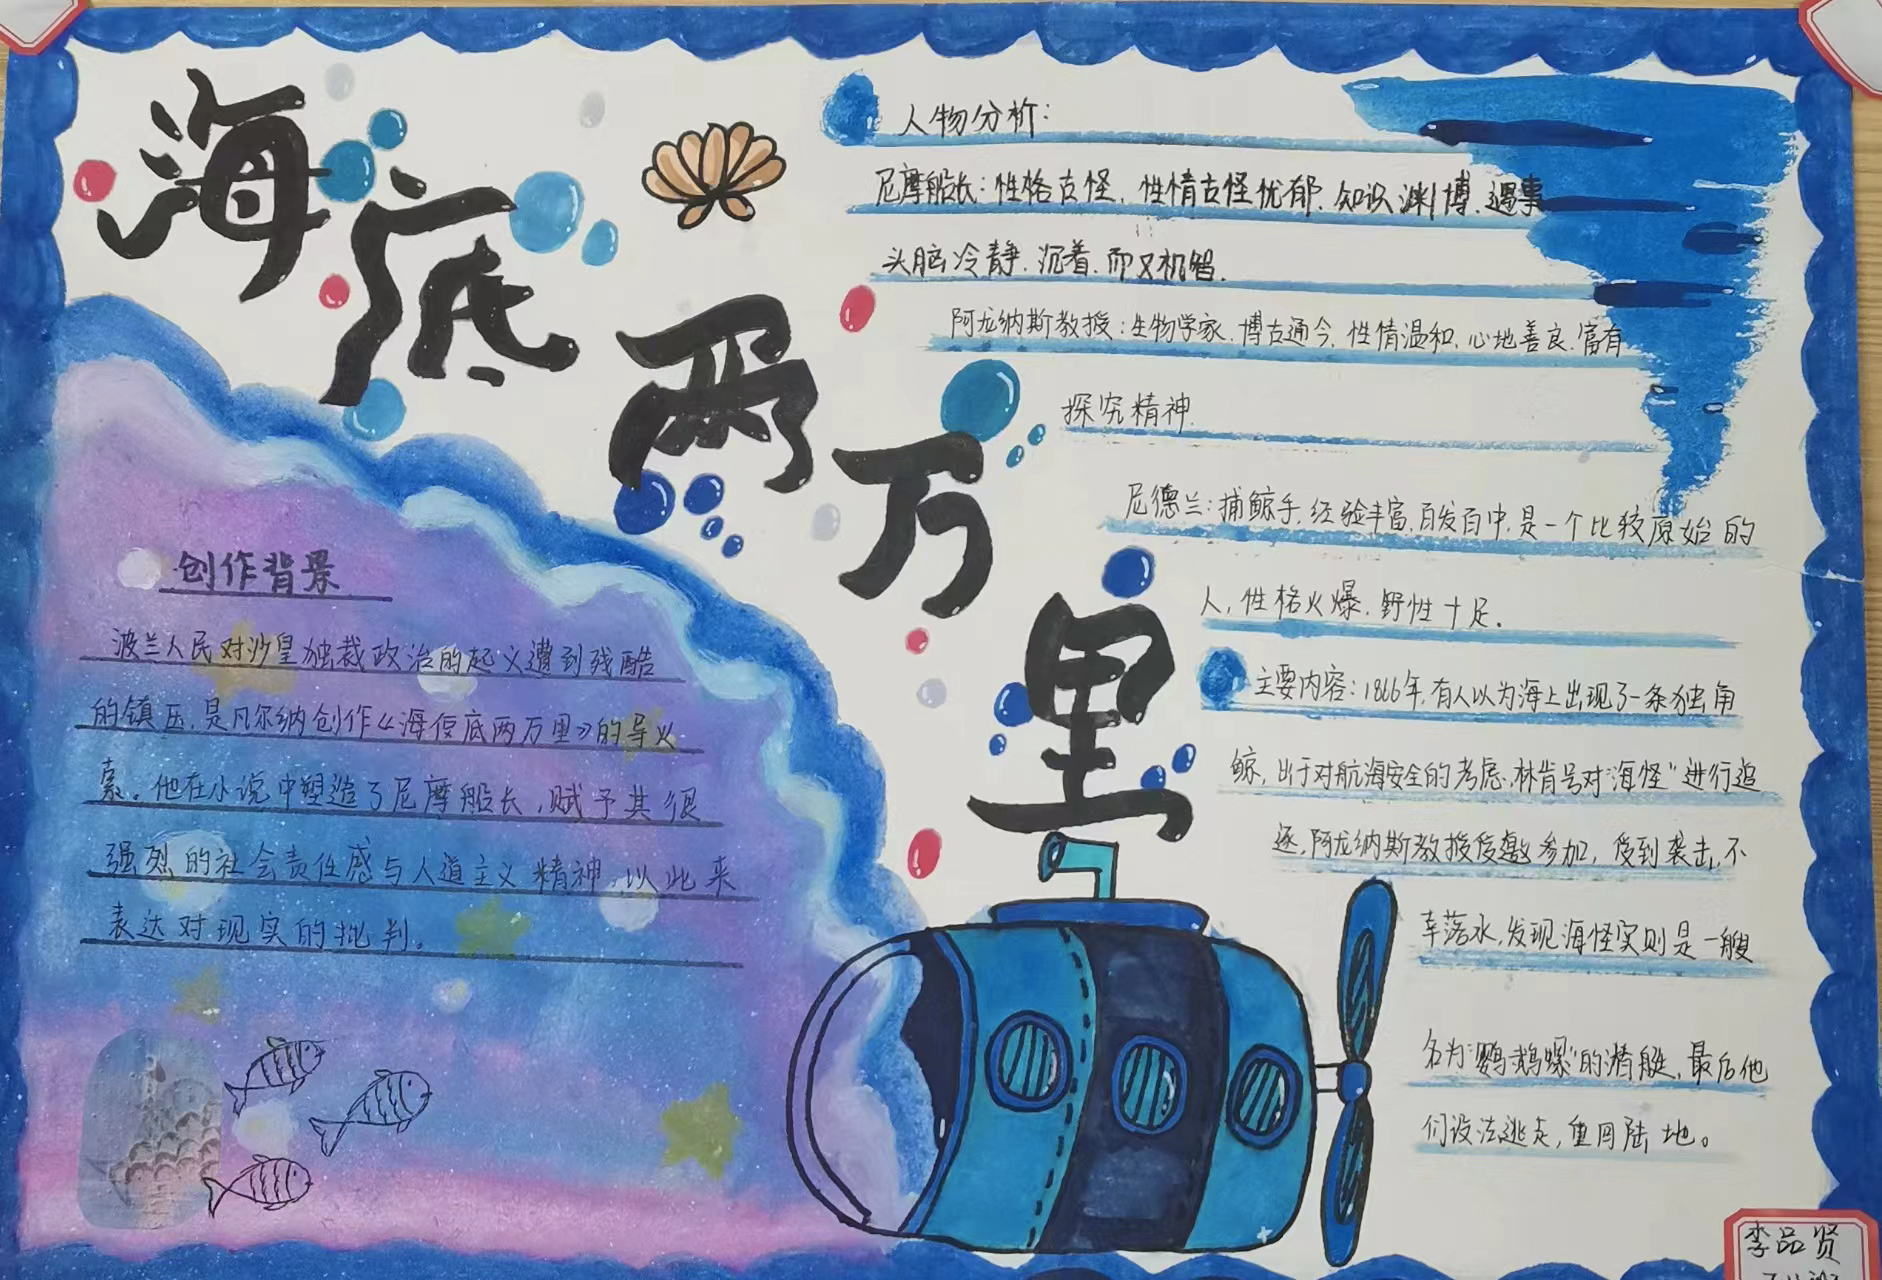 海底两万里
人物分析:
尼摩船长:性格古怪,性情古怪忧郁.知识渊博.遇事
头脑冷静.沉着.而又机智.
阿龙纳斯教授:生物学家.博古通今,性情温和,心地善良.富有
探究精神.
尼德兰:捕鲸手,经验丰富,百发百中,是一个比较原始的
人,性格火爆,野性十足.
主要内容:1866年,有人以为海上出现了一条独角
鲸,出于对航海安全的考虑,林肯号对“海怪”进行追
逐,阿龙纳斯教授受邀参加,受到袭击,不
幸落水,发现海怪实则是一艘
名为“鹦鹉螺”的潜艇,最后他
们设法逃走,重回陆地。
创作背景
波兰人民对沙皇独裁政治的起义遭到残酷
的镇压,是凡尔纳创作《海底两万里》的导火
索。他在小说中塑造了尼摩船长,赋予其很
强烈的社会责任感与人道主义精神,以此来
表达对现实的批判。
李品贤